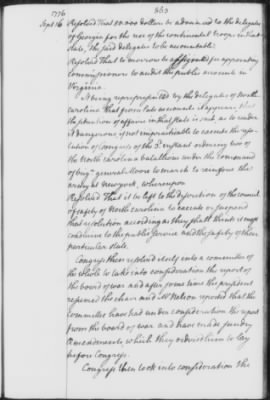 363
1776
Sept 16 Resolved That 60.000 dollars be advanced to the delegates
of Georgia for the use of the continental troops in that
state, the said delegates to be accountable
Resolved That to morrow be assigned for appointing
commissioners to audit the public accounts in
Virginia.
It being represented by the delegates of North
carolina that from late accounts it appears, that
the situation of affairs in that state is such as to render
it dangerous, if not impracticable to execute the reso-
lution of congress of the 3. instant ordering two of
the North carolina batallions under the command
of brigr general Moore to march to reinforce the
army at New york, whereupon
Resolved That it be left to the discretion of the council
of safety of North carolina to execute or suspend
that resolution according as they shall think it may
conduce to the public service and the safety of their
particular state.
Congress then resolved itself into a committee of
the whole to take into consideration the report of
the board of war and after some time the president
resumed the chair and Mr Nelson reported that the
committee have had under consideration the report
from the board of war and have made sundry
amendments, which they ordered him to lay
before Congress.
Congress then took into consideration the